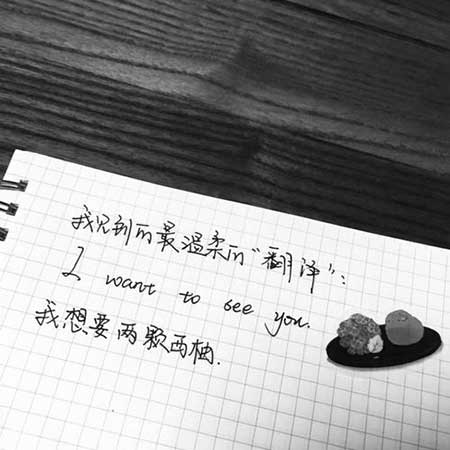 我见到的最温柔的“翻译”：
I want to see you.
我想要两颗西柚.